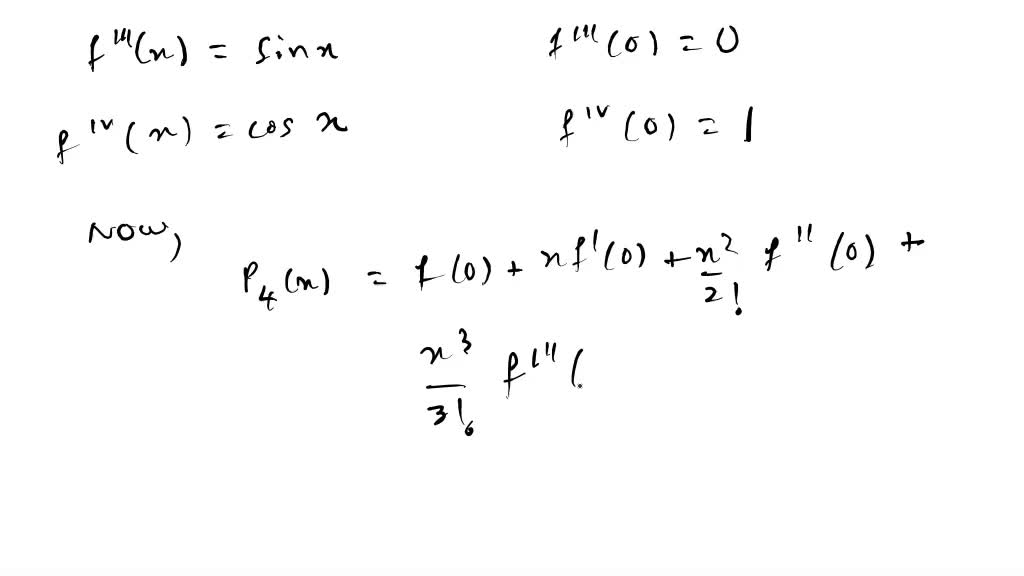 f'''(x) = sin x f'''(0) = 0
f^IV(x) = cos x f^IV(0) = 1
Now,
P_4(x) = f(0) + x f'(0) + x^2/2! f''(0) +
x^3/3! f'''(